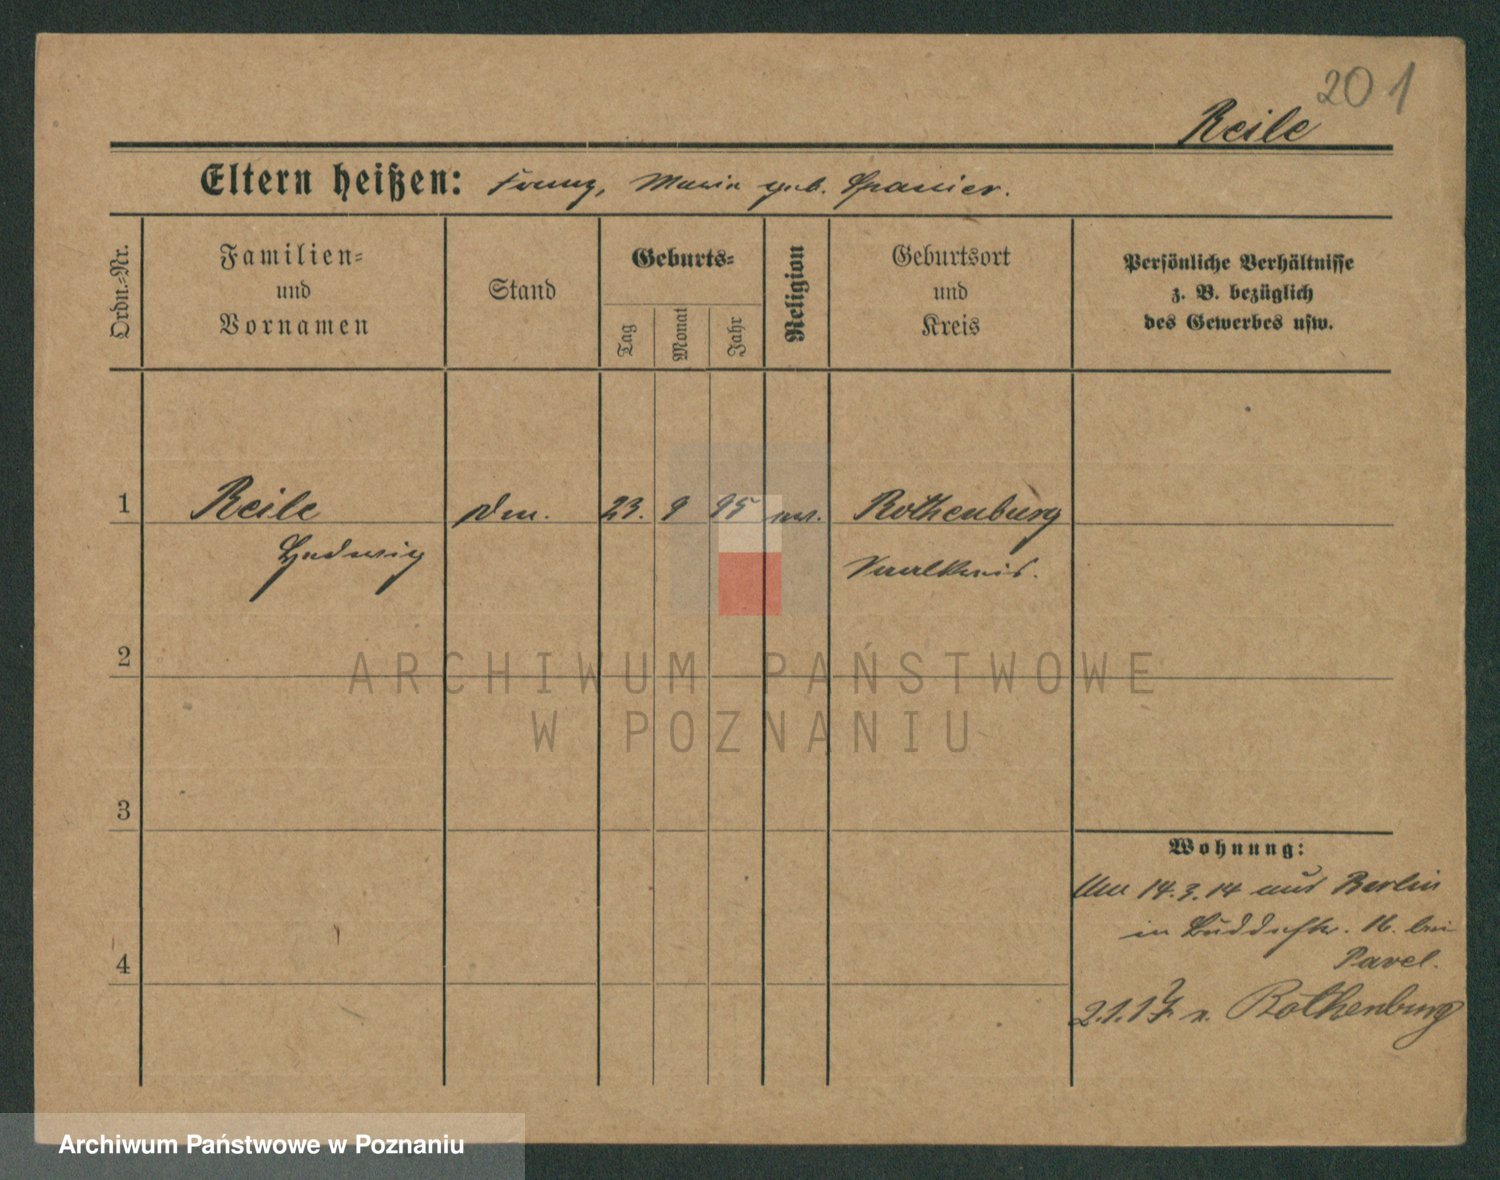 201
Reile
Eltern heißen: Franz, Maria geb. Spanier.
Ordn.-Nr.
Familien-
und
Vornamen
Stand
Geburts-
Tag
Monat
Jahr
Religion
Geburtsort
und
Kreis
Persönliche Verhältnisse
z. B. bezüglich
des Gewerbes usw.
1 Reile 23. 9 95 Rothenburg
Hedwig Saalkreis.
2
3
4
Wohnung:
14.3.14 aus Berlin
in 16. bei
Pavel.
2.1.17. n. Rothenburg
ARCHIWUM PAŃSTWOWE
W POZNANIU
Archiwum Państwowe w Poznaniu